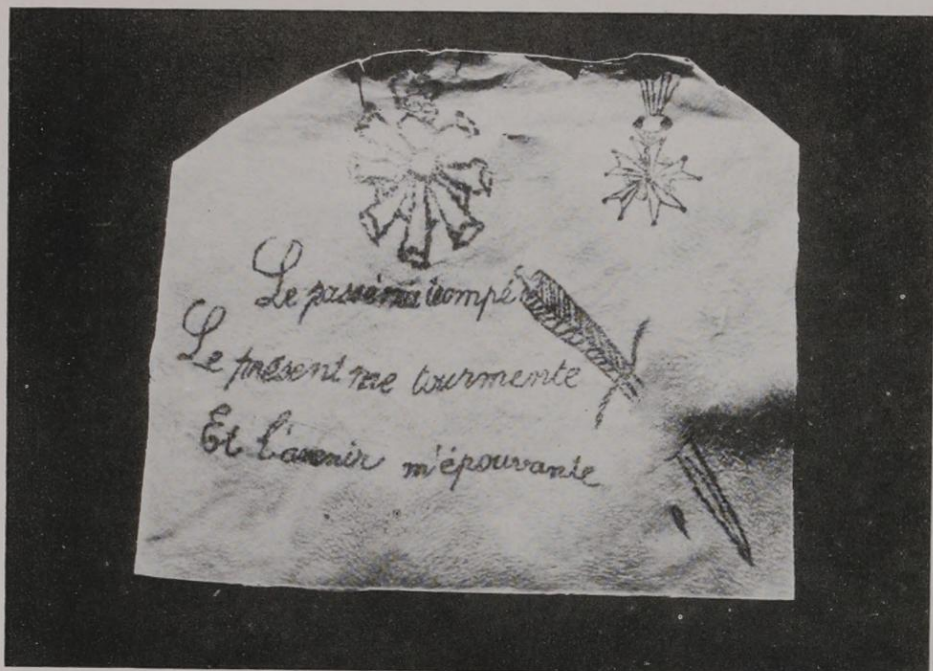 Le passé m'a trompé
Le présent me tourmente
Et l'avenir m'épouvante